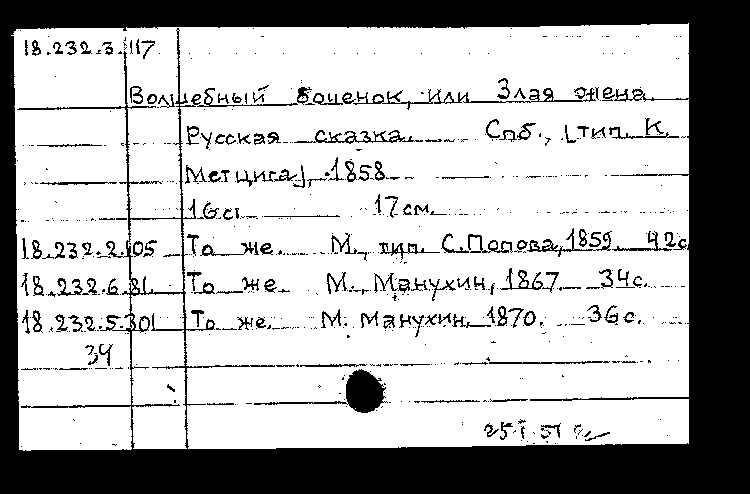 18.232.3.117
Волшебный боченок, или Злая жена.
Русская сказка. Спб., [тип. К.
Метцига], 1858
16с. 17см.
18.232.2.105 То же. М., тип. С.Попова, 1859. 42с
18.232.6.81. То же. М., Манухин, 1867. 34с.
18.232.5.301 То же. М. Манухин. 1870. 36с.
34
25.I.51